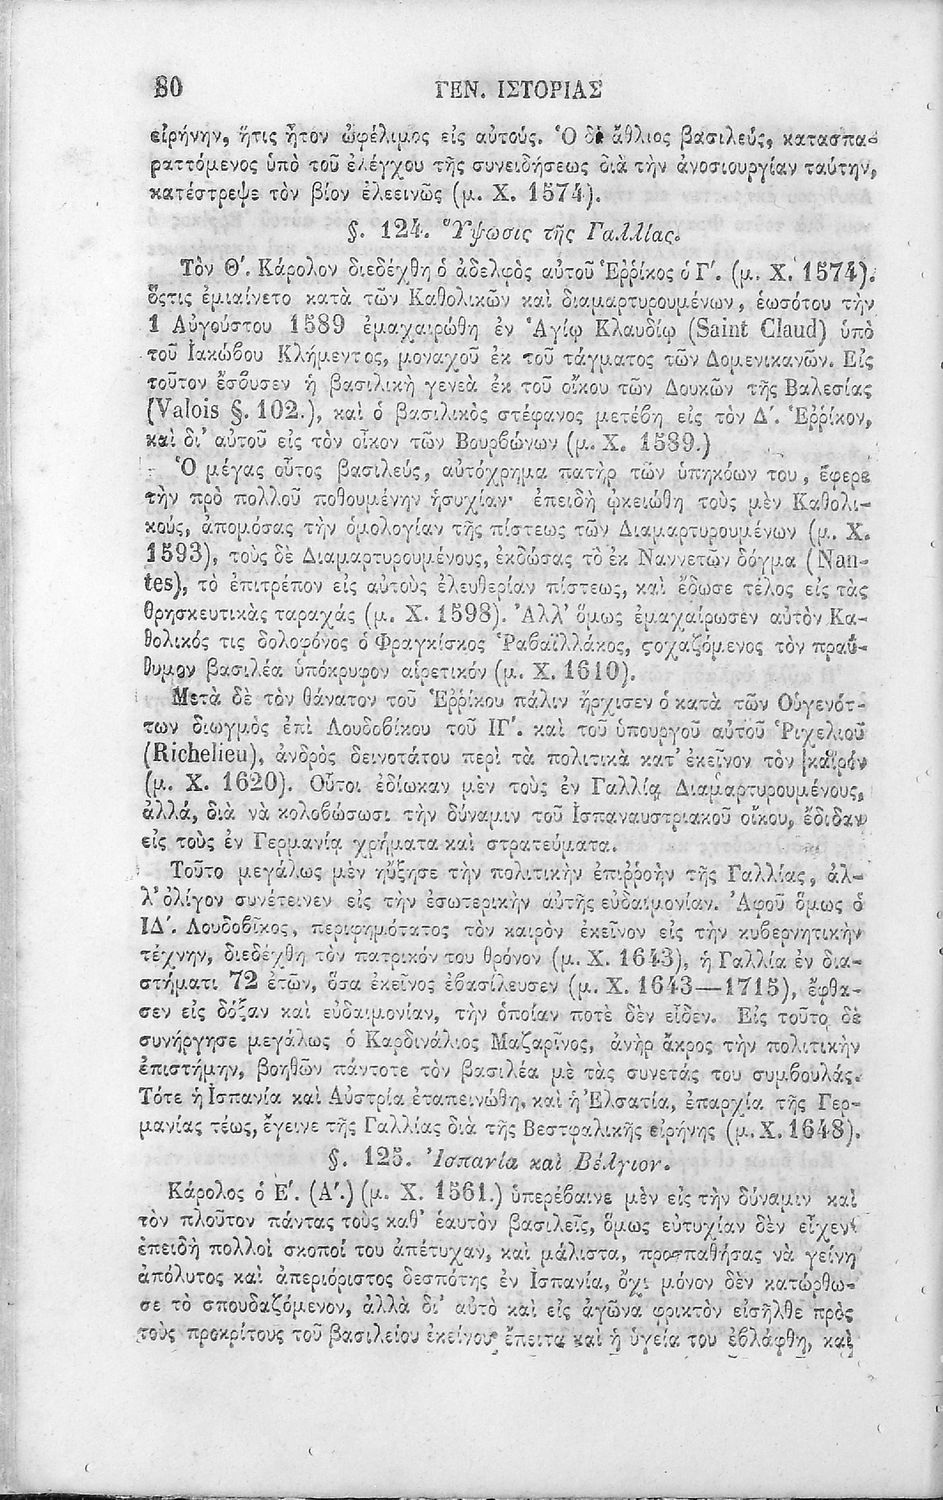 80 ΓΕΝ. ΙΣΤΟΡΙΑΣ
εἰρήνην, ἥτις ἦτον ὠφέλιμος εἰς αὐτούς. Ὁ δὲ ἄθλιος βασιλεὺς, κατασπα-
ραττόμενος ὑπὸ τοῦ ἐλέγχου τῆς συνειδήσεως διὰ τὴν ἀνοσιουργίαν ταύτην,
κατέστρεψε τὸν βίον ἐλεεινῶς (μ. Χ. 1574).
§. 124. Ὕψωσις τῆς Γαλλίας.
Τὸν Θ΄. Κάρολον διεδέχθη ὁ ἀδελφὸς αὐτοῦ Ἐῤῥίκος ὁ Γ΄. (μ. Χ. 1574).
ὅςτις ἐμιαίνετο κατὰ τῶν Καθολικῶν καὶ διαμαρτυρουμένων, ἑωσότου τὴν
1 Αὐγούστου 1589 ἐμαχαιρώθη ἐν Ἁγίῳ Κλαυδίῳ (Saint Claud) ὑπὸ
τοῦ Ἰακώβου Κλήμεντος, μοναχοῦ ἐκ τοῦ τάγματος τῶν Δομενικανῶν. Εἰς
τοῦτον ἔσβυσεν ἡ βασιλικὴ γενεὰ ἐκ τοῦ οἴκου τῶν Δουκῶν τῆς Βαλεσίας
(Valois §. 102.), καὶ ὁ βασιλικὸς στέφανος μετέβη εἰς τὸν Δ΄. Ἐῤῥίκον,
καὶ δι᾽ αὐτοῦ εἰς τὸν οἶκον τῶν Βουρβώνων (μ. Χ. 1589.)
Ὁ μέγας οὗτος βασιλεὺς, αὐτόχρημα πατὴρ τῶν ὑπηκόων του, ἔφερε
τὴν πρὸ πολλοῦ ποθουμένην ἡσυχίαν· ἐπειδὴ ᾠκειώθη τοὺς μὲν Καθολι-
κούς, ἀπομόσας τὴν ὁμολογίαν τῆς πίστεως τῶν Διαμαρτυρουμένων (μ. Χ.
1593), τοὺς δὲ Διαμαρτυρουμένους, ἐκδώσας τὸ ἐκ Ναννετῶν δόγμα (Nan-
tes), τὸ ἐπιτρέπον εἰς αὐτοὺς ἐλευθερίαν πίστεως, καὶ ἔδωσε τέλος εἰς τὰς
θρησκευτικὰς ταραχάς (μ. Χ. 1598). Ἀλλ᾽ ὅμως ἐμαχαίρωσεν αὐτὸν Κα-
θολικός τις δολοφόνος ὁ Φραγκίσκος Ῥαβαϊλλάκος, ϛοχαζόμενος τὸν πραΰ-
θυμον βασιλέα ὑπόκρυφον αἱρετικόν (μ. Χ. 1610).
Μετὰ δὲ τὸν θάνατον τοῦ Ἐῤῥίκου πάλιν ἤρχισεν ὁ κατὰ τῶν Οὑγενότ-
των διωγμὸς ἐπὶ Λουδοβίκου τοῦ ΙΓ΄. καὶ τοῦ ὑπουργοῦ αὐτοῦ Ῥιχελιοῦ
(Richelieu), ἀνδρὸς δεινοτάτου περὶ τὰ πολιτικὰ κατ᾽ ἐκεῖνον τὸν καιρόν
(μ. Χ. 1620). Οὗτοι ἐδίωκαν μὲν τοὺς ἐν Γαλλίᾳ Διαμαρτυρουμένους,
ἀλλά, διὰ νὰ κολοβώσωσι τὴν δύναμιν τοῦ Ἰσπαναυστριακοῦ οἴκου, ἔδιδαν
εἰς τοὺς ἐν Γερμανίᾳ χρήματα καὶ στρατεύματα.
Τοῦτο μεγάλως μὲν ηὔξησε τὴν πολιτικὴν ἐπιῤῥοὴν τῆς Γαλλίας, ἀλ-
λ᾽ ὀλίγον συνέτεινεν εἰς τὴν ἐσωτερικὴν αὐτῆς εὐδαιμονίαν. Ἀφοῦ ὅμως ὁ
ΙΔ΄. Λουδοβῖκος, περιφημότατος τὸν καιρὸν ἐκεῖνον εἰς τὴν κυβερνητικὴν
τέχνην, διεδέχθη τὸν πατρικόν του θρόνον (μ. Χ. 1643), ἡ Γαλλία ἐν δια-
στήματι 72 ἐτῶν, ὅσα ἐκεῖνος ἐβασίλευσεν (μ. Χ. 1643—1715), ἔφθα-
σεν εἰς δόξαν καὶ εὐδαιμονίαν, τὴν ὁποίαν ποτὲ δὲν εἶδεν. Εἰς τοῦτο δὲ
συνήργησε μεγάλως ὁ Καρδινάλιος Μαζαρῖνος, ἀνὴρ ἄκρος τὴν πολιτικὴν
ἐπιστήμην, βοηθῶν πάντοτε τὸν βασιλέα μὲ τὰς συνετάς του συμβουλάς.
Τότε ἡ Ἰσπανία καὶ Αὐστρία ἐταπεινώθη, καὶ ἡ Ἐλσατία, ἐπαρχία τῆς Γερ-
μανίας τέως, ἔγεινε τῆς Γαλλίας διὰ τῆς Βεστφαλικῆς εἰρήνης (μ. Χ. 1648).
§. 125. Ἰσπανία καὶ Βέλγιον.
Κάρολος ὁ Ε΄. (Α΄.) (μ. Χ. 1561.) ὑπερέβαινε μὲν εἰς τὴν δύναμιν καὶ
τὸν πλοῦτον πάντας τοὺς καθ᾽ ἑαυτὸν βασιλεῖς, ὅμως εὐτυχίαν δὲν εἶχεν·
ἐπειδὴ πολλοὶ σκοποί του ἀπέτυχαν, καὶ μάλιστα, προσπαθήσας νὰ γείνῃ
ἀπόλυτος καὶ ἀπεριόριστος δεσπότης ἐν Ἰσπανίᾳ, ὄχι μόνον δὲν κατώρθω-
σε τὸ σπουδαζόμενον, ἀλλὰ δι᾽ αὐτὸ καὶ εἰς ἀγῶνα φρικτὸν εἰσῆλθε πρὸς
τοὺς προκρίτους τοῦ βασιλείου ἐκείνου· ἔπειτα καὶ ἡ ὑγεία του ἐβλάφθη, καὶ